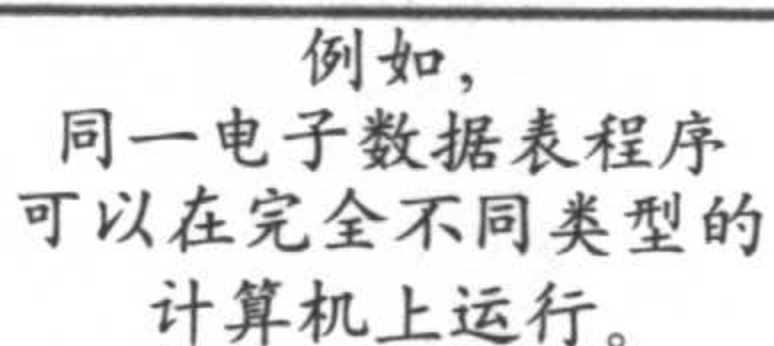 例如，
同一电子数据表程序
可以在完全不同类型的
计算机上运行。